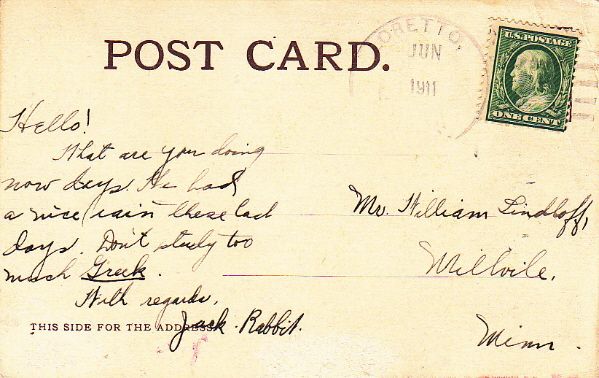 POST CARD.
ORETTO,
JUN
1911
U.S. POSTAGE
ONE CENT
Hello!
What are you doing
now days. We had
a nice rain these last
days. Don't study too
much Greek.
With regards,
Jack Rabbit.
Mr. William Lindloff,
Millvile,
Minn.
THIS SIDE FOR THE ADDRESS